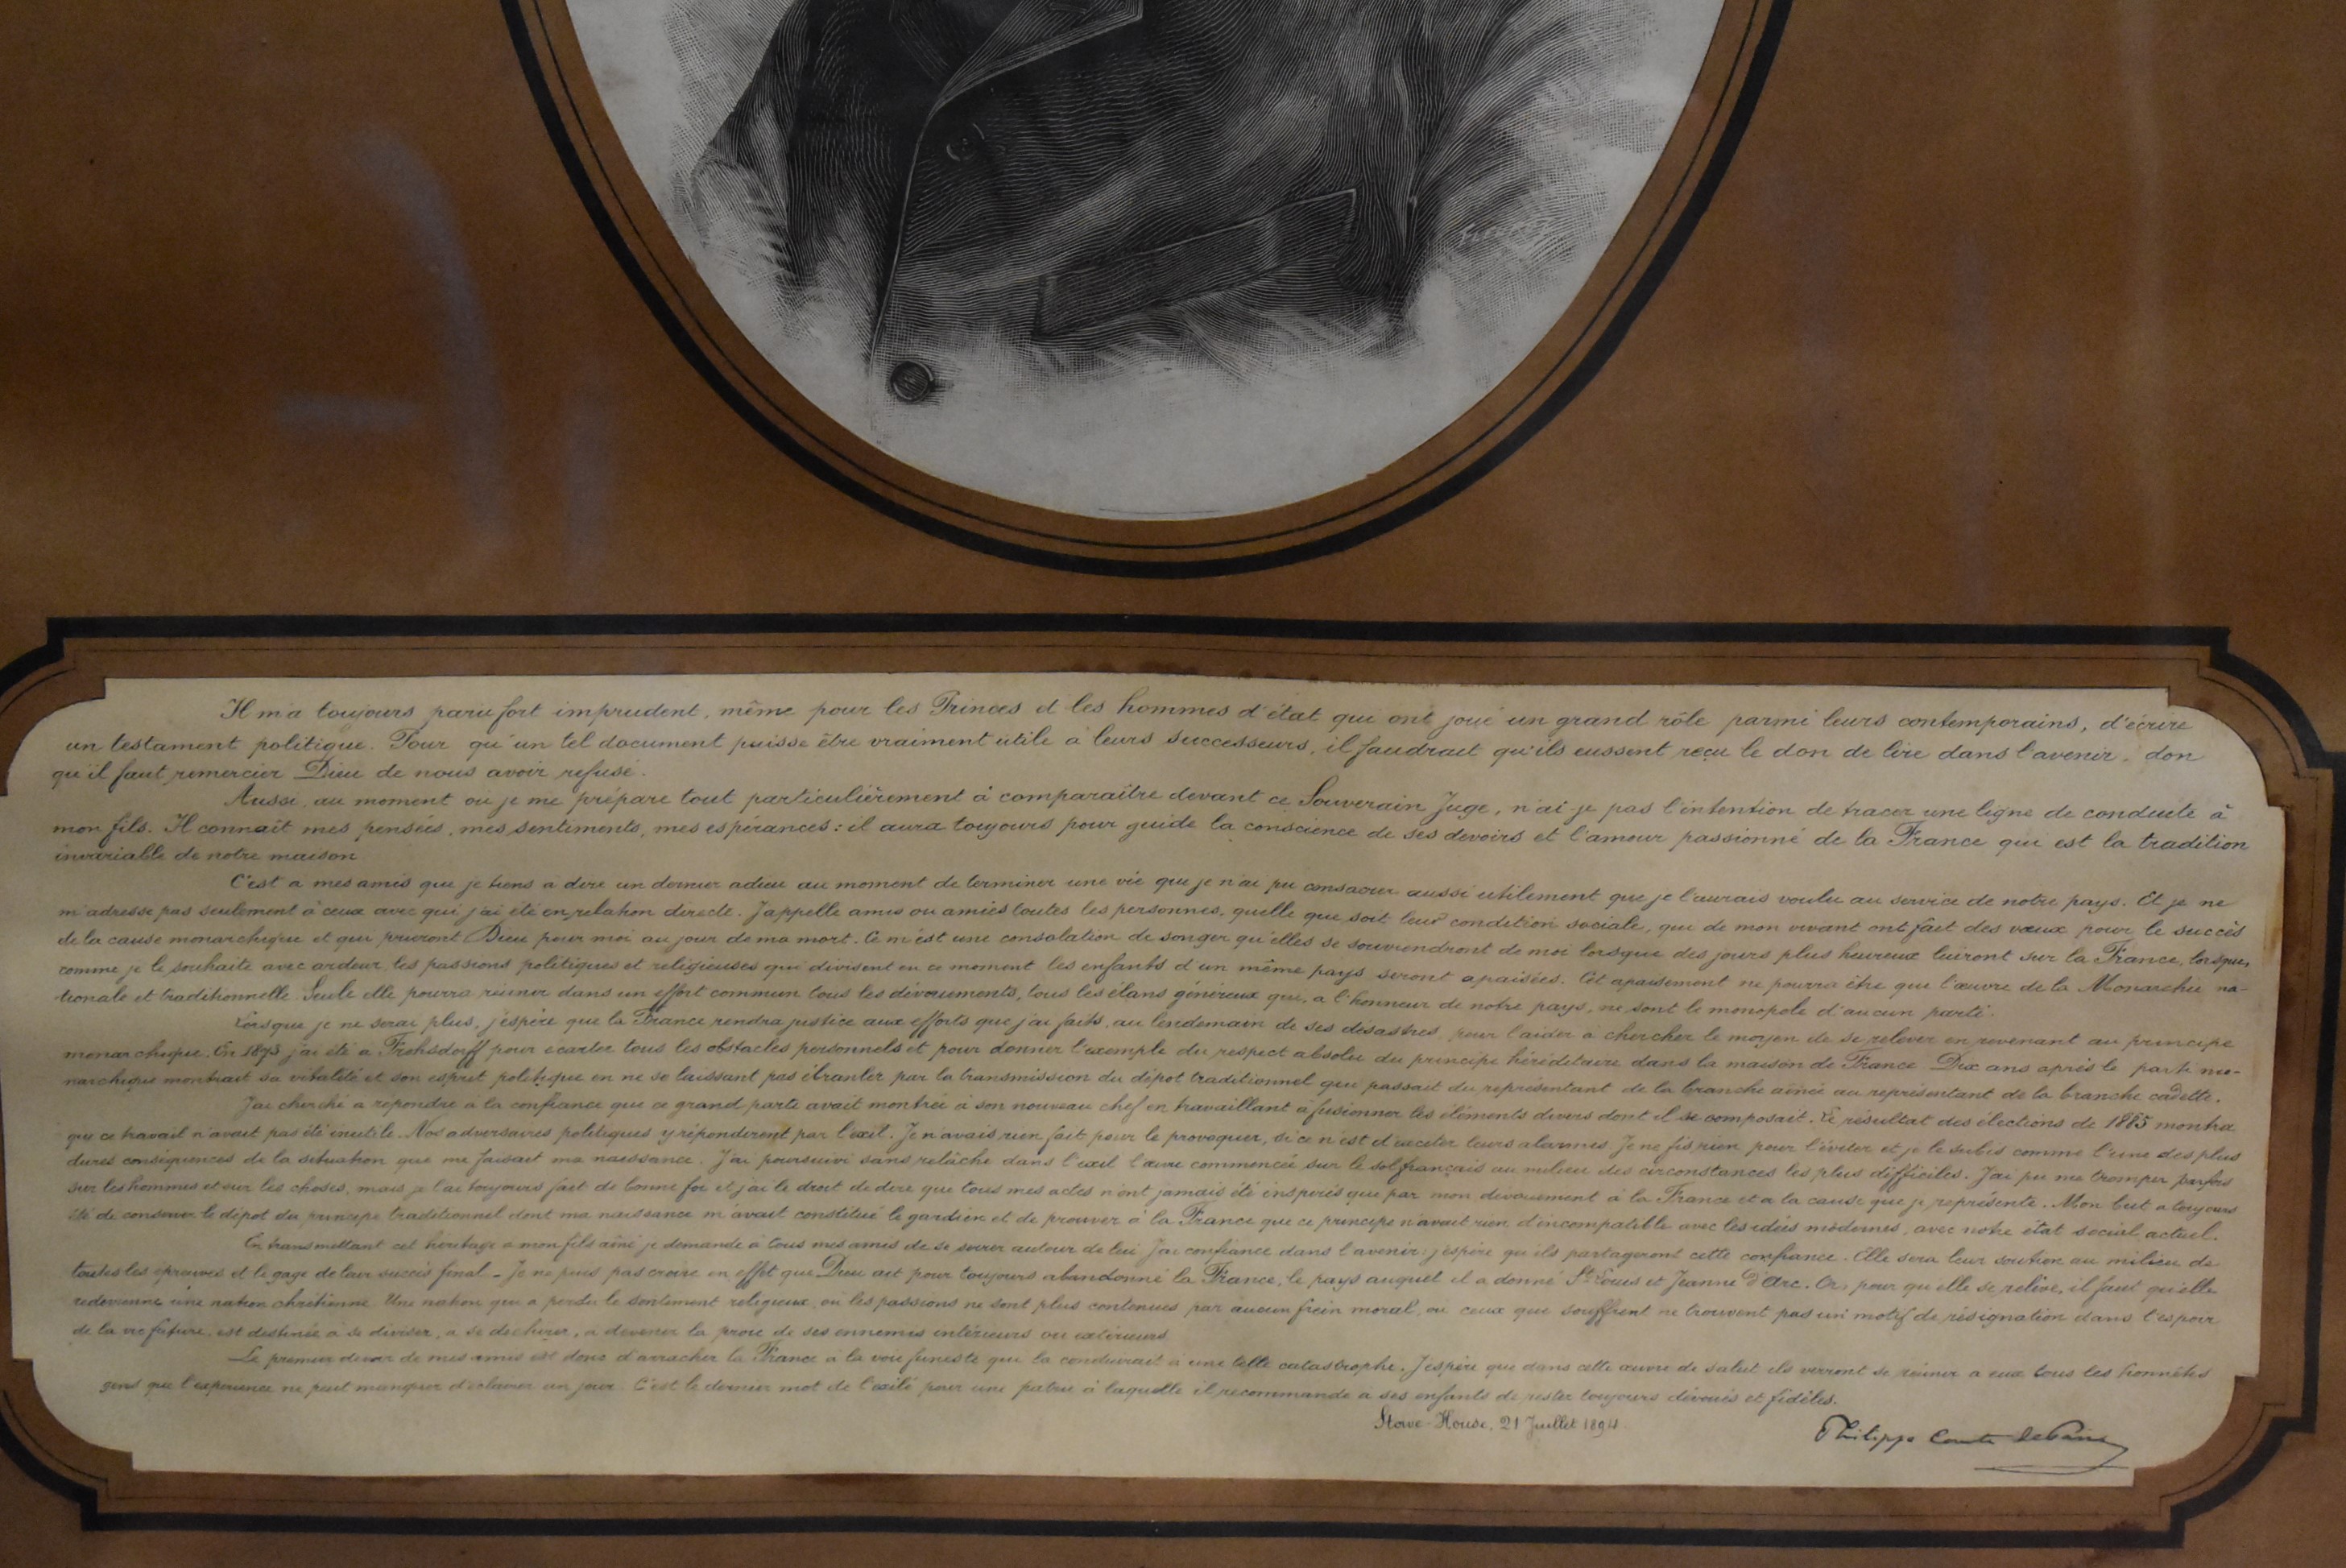 Il m'a toujours paru fort imprudent, même pour les Princes et les hommes d'état qui ont joué un grand rôle parmi leurs contemporains, d'écrire
un testament politique. Pour qu'un tel document puisse être vraiment utile à leurs successeurs, il faudrait qu'ils eussent reçu le don de lire dans l'avenir, don
qu'il faut remercier Dieu de nous avoir refusé.
Aussi, au moment où je me prépare tout particulièrement à comparaître devant ce Souverain Juge, n'ai-je pas l'intention de tracer une ligne de conduite à
mon fils. Il connaît mes pensées, mes sentiments, mes espérances: il aura toujours pour guide la conscience de ses devoirs et l'amour passionné de la France qui est la tradition
invariable de notre maison.
C'est à mes amis que je tiens à dire un dernier adieu au moment de terminer une vie que je n'ai pu consacrer aussi utilement que je l'aurais voulu au service de notre pays. Et je ne
m'adresse pas seulement à ceux avec qui j'ai été en relation directe. J'appelle amis ou amies toutes les personnes, quelle que soit leur condition sociale, qui de mon vivant ont fait des vœux pour le succès
de la cause monarchique et qui prieront Dieu pour moi au jour de ma mort. Ce m'est une consolation de songer qu'elles se souviendront de moi lorsque des jours plus heureux luiront sur la France, lorsque,
comme je le souhaite avec ardeur, les passions politiques et religieuses qui divisent en ce moment les enfants d'un même pays seront apaisées. Cet apaisement ne pourra être que l'œuvre de la Monarchie na-
tionale et traditionnelle. Seule elle pourra réunir dans un effort commun tous les dévouements, tous les élans généreux qui, à l'honneur de notre pays, ne sont le monopole d'aucun parti.
Lorsque je ne serai plus, j'espère que la France rendra justice aux efforts que j'ai faits, au lendemain de ses désastres pour l'aider à chercher le moyen de se relever en revenant au principe
monarchique. En 1873 j'ai été à Frohsdorff pour écarter tous les obstacles personnels et pour donner l'exemple du respect absolu du principe héréditaire dans la maison de France. Dix ans après le parti mo-
narchique montrait sa vitalité et son esprit politique en ne se laissant pas ébranler par la transmission du dépôt traditionnel qui passait du représentant de la branche aînée au représentant de la branche cadette.
J'ai cherché à répondre à la confiance que ce grand parti avait montrée à son nouveau chef en travaillant à fusionner les éléments divers dont il se composait. Le résultat des élections de 1885 montra
que ce travail n'avait pas été inutile. Nos adversaires politiques y répondirent par l'exil. Je n'avais rien fait pour le provoquer, si ce n'est d'exciter leurs alarmes. Je ne fis rien pour l'éviter et je le subis comme l'une des plus
dures conséquences de la situation que me faisait ma naissance. J'ai poursuivi sans relâche dans l'exil l'œuvre commencée sur le sol français au milieu des circonstances les plus difficiles. J'ai pu me tromper parfois
sur les hommes et sur les choses, mais je l'ai toujours fait de bonne foi et j'ai le droit de dire que tous mes actes n'ont jamais été inspirés que par mon dévouement à la France et à la cause que je représente. Mon but a toujours
été de conserver le dépôt du principe traditionnel dont ma naissance m'avait constitué le gardien et de prouver à la France que ce principe n'avait rien d'incompatible avec les idées modernes, avec notre état social actuel.
En transmettant cet héritage à mon fils aîné je demande à tous mes amis de se serrer autour de lui. J'ai confiance dans l'avenir: j'espère qu'ils partageront cette confiance. Elle sera leur soutien au milieu de
toutes les épreuves et le gage de leur succès final. – Je ne puis pas croire en effet que Dieu ait pour toujours abandonné la France, le pays auquel il a donné St Louis et Jeanne d'Arc. Or, pour qu'elle se relève, il faut qu'elle
redevienne une nation chrétienne. Une nation qui a perdu le sentiment religieux, où les passions ne sont plus contenues par aucun frein moral, où ceux qui souffrent ne trouvent pas un motif de résignation dans l'espoir
de la vie future, est destinée à se diviser, à se déchirer, à devenir la proie de ses ennemis intérieurs ou extérieurs.
Le premier devoir de mes amis est donc d'arracher la France à la voie funeste qui la conduirait à une telle catastrophe. J'espère que dans cette œuvre de salut ils verront se réunir à eux tous les honnêtes
gens que l'expérience ne peut manquer d'éclairer un jour. C'est le dernier mot de l'exilé pour une patrie à laquelle il recommande à ses enfants de rester toujours dévoués et fidèles.
Stowe-House, 21 Juillet 1894.
Philippe Comte de Paris